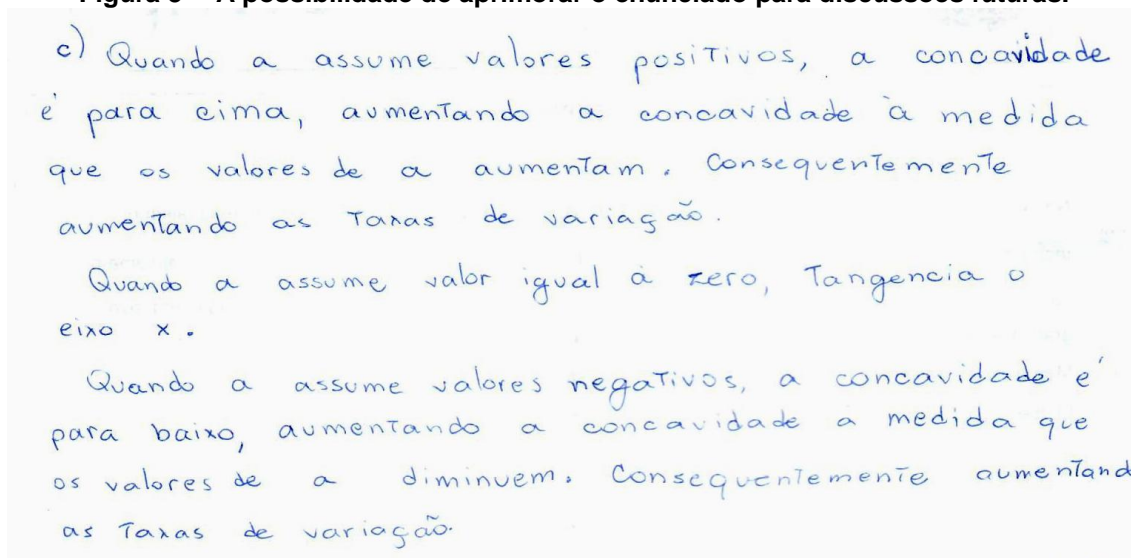 c) Quando a assume valores positivos, a concavidade
é para cima, aumentando a concavidade à medida
que os valores de a aumentam. Consequentemente
aumentando as taxas de variação.
Quando a assume valor igual à zero, tangencia o
eixo x.
Quando a assume valores negativos, a concavidade é
para baixo, aumentando a concavidade a medida que
os valores de a diminuem. Consequentemente aumentand
as taxas de variação.